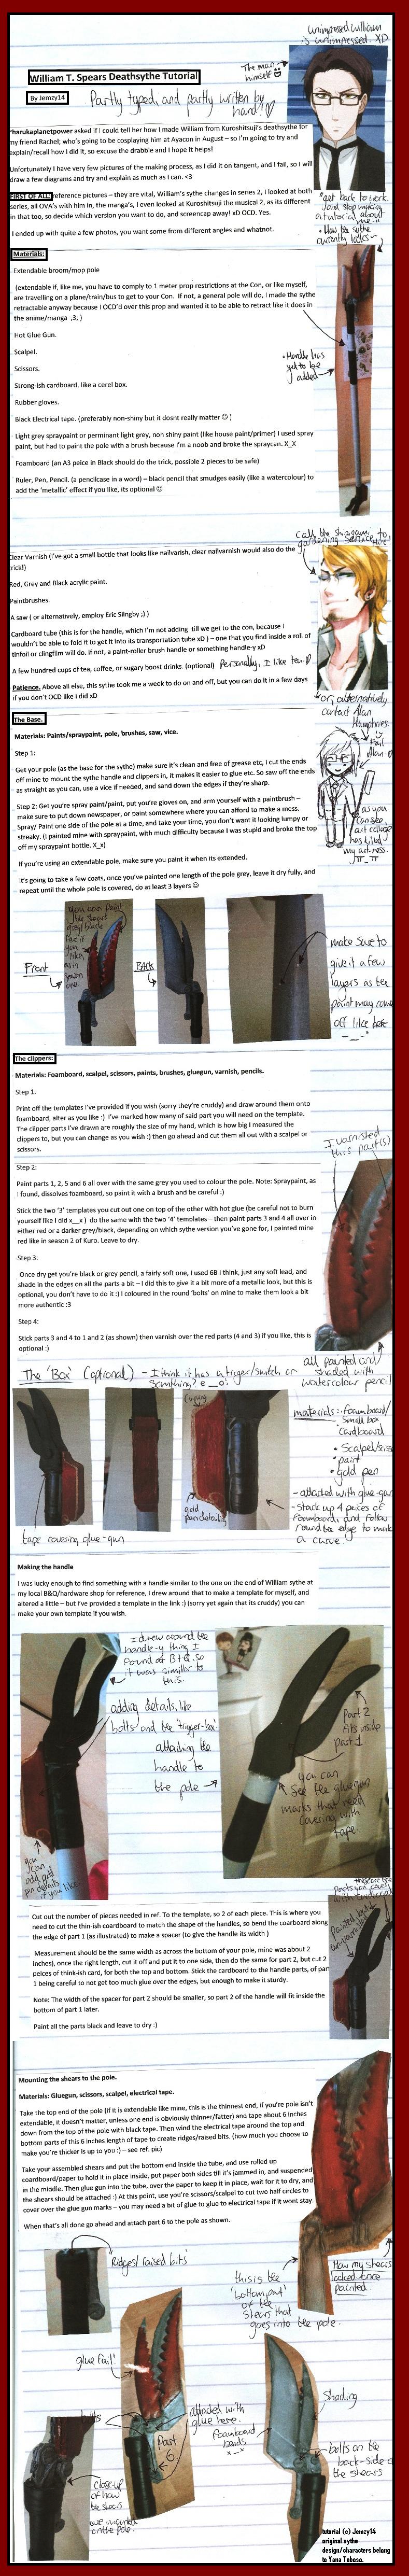 unimpressed william
is unimpressed. XD
The man
himself
William T. Spears Deathsythe Tutorial
By Jemzy14
Partly typed, and partly written by
hand!
*harukaplanetpower asked if I could tell her how I made William from Kuroshitsuji's deathsythe for
my friend Rachel; who's going to be cosplaying him at Ayacon in August – so I'm going to try and
explain/recall how I did it, so excuse the drabble and I hope it helps!
Unfortunately I have very few pictures of the making process, as I did it on tangent, and I fail, so I will
draw a few diagrams and try and explain as much as I can. <3
FIRST OF ALL reference pictures – they are vital, William's sythe changes in series 2, I looked at both
series, all OVA's with him in, the manga's, I even looked at Kuroshitsuji the musical 2, as its different
in that too, so decide which version you want to do, and screencap away! xD OCD. Yes.
I ended up with quite a few photos, you want some from different angles and whatnot.
"get back to work.
and stop making
a tutorial about
me."
• How the sythe
currently looks~
Materials:
Extendable broom/mop pole
(extendable if, like me, you have to comply to 1 meter prop restrictions at the Con, or like myself,
are travelling on a plane/train/bus to get to your Con. If not, a general pole will do, I made the sythe
retractable anyway because I OCD'd over this prop and wanted it to be able to retract like it does in
the anime/manga ;3; )
Hot Glue Gun.
Scalpel.
Scissors.
Strong-ish cardboard, like a cerel box.
Rubber gloves.
Black Electrical tape. (preferably non-shiny but it dosnt really matter ☺ )
Light grey spraypaint or perminant light grey, non shiny paint (like house paint/primer) I used spray
paint, but had to paint the pole with a brush because I'm a noob and broke the spraycan. X_X
Foamboard (an A3 peice in Black should do the trick, possible 2 pieces to be safe)
Ruler, Pen, Pencil. (a pencilcase in a word) – black pencil that smudges easily (like a watercolour) to
add the 'metallic' effect if you like, its optional ☺
• Handle has
yet to be
added
Call the shinigami
gardening service
Clear Varnish (i've got a small bottle that looks like nailvarish, clear nailvarnish would also do the
trick!)
Red, Grey and Black acrylic paint.
Paintbrushes.
A saw ( or alternatively, employ Eric Slingby ;) )
Cardboard tube (this is for the handle, which I'm not adding till we get to the con, because I
wouldn't be able to fold it to get it into its transportation tube xD ) – one that you find inside a roll of
tinfoil or clingfilm will do. If not, a paint-roller brush handle or something handle-y xD
A few hundred cups of tea, coffee, or sugary boost drinks. (optional) Personally, I like tea
Patience. Above all else, this sythe took me a week to do on and off, but you can do it in a few days
if you don't OCD like I did xD
or, alternatively
contact Alan
Humphries
Fail
Alan
as you
can see,
art college
has killed
my art-ness.
The Base.
Materials: Paints/spraypaint, pole, brushes, saw, vice.
Step 1:
Get your pole (as the base for the sythe) make sure it's clean and free of grease etc, I cut the ends
off mine to mount the sythe handle and clippers in, it makes it easier to glue etc. So saw off the ends
as straight as you can, use a vice if needed, and sand down the edges if they're sharp.
Step 2: Get you're spray paint/paint, put you're gloves on, and arm yourself with a paintbrush –
make sure to put down newspaper, or paint somewhere where you can afford to make a mess.
Spray/ Paint one side of the pole at a time, and take your time, you don't want it looking lumpy or
streaky. (i painted mine with spraypaint, with much difficulty because I was stupid and broke the top
off my spraypaint bottle. X_x)
If you're using an extendable pole, make sure you paint it when its extended.
It's going to take a few coats, once you've painted one length of the pole grey, leave it dry fully, and
repeat until the whole pole is covered, do at least 3 layers ☺
Front
BACK
make sure to
give it a few
layers as the
paint may come
off like here
The clippers:
Materials: Foamboard, scalpel, scissors, paints, brushes, gluegun, varnish, pencils.
Step 1:
Print off the templates I've provided if you wish (sorry they're cruddy) and draw around them onto
foamboard, alter as you like :) I've marked how many of said part you will need on the template.
The clipper parts I've drawn are roughly the size of my hand, which is how big I measured the
clippers to, but you can change as you wish :) then go ahead and cut them all out with a scalpel or
scissors.
I varnished
this part(s)
Step 2:
Paint parts 1, 2, 5 and 6 all over with the same grey you used to colour the pole. Note: Spraypaint, as
I found, dissolves foamboard, so paint it with a brush and be careful :)
Stick the two '3' templates you cut out one on top of the other with hot glue (be careful not to burn
yourself like I did x__x ) do the same with the two '4' templates – then paint parts 3 and 4 all over in
either red or a darker grey/black, depending on which sythe version you've gone for, I painted mine
red like in season 2 of Kuro. Leave to dry.
Step 3:
Once dry get you're black or grey pencil, a fairly soft one, I used 6B I think, just any soft lead, and
shade in the edges on all the parts a bit – I did this to give it a bit more of a metallic look, but this is
optional, you don't have to do it :) I coloured in the round 'bolts' on mine to make them look a bit
more authentic :3
Step 4:
Stick parts 3 and 4 to 1 and 2 (as shown) then varnish over the red parts (4 and 3) if you like, this is
optional :)
all painted and
shaded with
watercolour pencil
The 'Box' (optional) – I think it has a trigger/switch or
something? e__o!
gold
pen details
tape covering glue-gun
materials:- foamboard/
small box
cardboard
• Scalpel/sciss
• paint
• gold pen
- attached with glue-gun
- stack up 4 pieces of
foamboard, and follow
round the edge to make
a curve.
Making the handle
I was lucky enough to find something with a handle similar to the one on the end of William sythe at
my local B&Q/hardware shop for reference, I drew around that to make a template for myself, and
altered a little – but I've provided a template in the link :) (sorry yet again that its cruddy) you can
make your own template if you wish.
I drew around the
handle-y thing I
found at B+Q so
it was similar to
this.
adding details, like
bolts and the 'trigger-box'
attaching the
handle to
the pole
Part 2
fits inside
part 1
you can
see the gluegun
marks that need
covering with
tape.
you can
add gold
pen details
if you like
Cut out the number of pieces needed in ref. To the template, so 2 of each piece. This is where you
need to cut the thin-ish coardboard to match the shape of the handles, so bend the coarboard along
the edge of part 1 (as illustrated) to make a spacer (to give the handle its width )
Measurement should be the same width as across the bottom of your pole, mine was about 2
inches), once the right length, cut it off and put it to one side, then do the same for part 2, but cut 2
peices of think-ish card, for both the top and bottom. Stick the cardboard to the handle parts, of part
1 being careful to not get too much glue over the edges, but enough to make it sturdy.
Note: The width of the spacer for part 2 should be smaller, so part 2 of the handle will fit inside the
bottom of part 1 later.
Paint all the parts black and leave to dry :)
Mounting the shears to the pole.
Materials: Gluegun, scissors, scalpel, electrical tape.
Take the top end of the pole (if it is extendable like mine, this is the thinnest end, if you're pole isn't
extendable, it doesn't matter, unless one end is obviously thinner/fatter) and tape about 6 inches
down from the top of the pole with black tape. Then wind the electrical tape around the top and
bottom parts of this 6 inches length of tape to create ridges/raised bits. (how much you choose to
make you're thicker is up to you :) – see ref. pic)
Take your assembled shears and put the bottom end inside the tube, and use rolled up
coardboard/paper to hold it in place inside, put paper both sides till it's jammed in, and suspended
in the middle. Then glue gun into the tube, over the paper to keep it in place, wait for it to dry, and
the shears should be attached :) At this point, use you're scissors/scalpel to cut two half circles to
cover over the glue gun marks – you may need a bit of glue to glue to electrical tape if it wont stay.
When that's all done go ahead and attach part 6 to the pole as shown.
'Ridges/raised bits'
this is the
'bottom part'
of the
shears that
goes into the pole.
How my shears
looked once
painted.
glue fail!
bolts
attached with
glue here.
Part
6
foamboard
bends
x_x
Shading
bolts on the
back-side of
the shears
close up
of how
the shears
are mounted
on the pole.
tutorial (c) Jemzy14
original sythe
design/characters belong
to Yana Toboso.